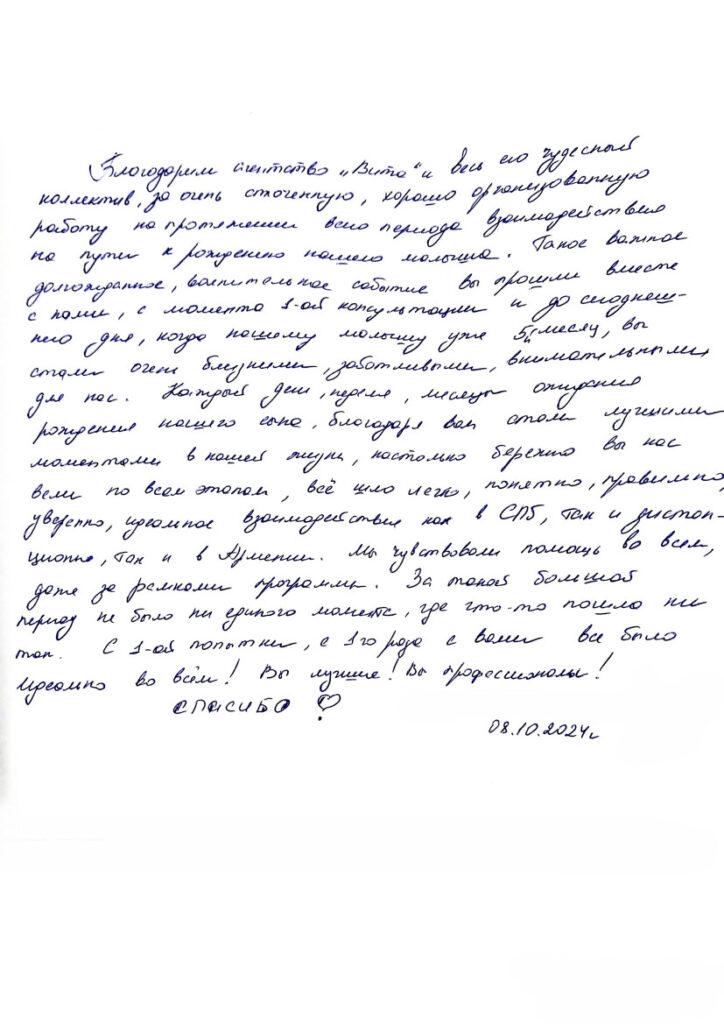 Благодарим агентство „Вита" и весь его чудесный
коллектив, за очень сточенную, хорошо организованную
работу на протяжении всего периода взаимодействия
на пути к рождению нашего малыша. Такое важное
долгожданное, волнительное событие вы прошли вместе
с нами, с момента 1-ой консультации и до сегоднеш-
него дня, когда нашему малышу уже 5ый месяц, вы
стали очень близкими, заботливыми, внимательными
для нас. Каждый день, неделя, месяцы ожидания
рождения нашего сына, благодаря вам стали лучшими
моментами в нашей жизни, настолько бережно вы нас
вели по всем этапам, всё шло легко, понятно, правильно,
уверенно, идеальное взаимодействие как в СПб, так и дистан-
ционно, так и в Армении. Мы чувствовали помощь во всем,
даже за рамками программы. За такой большой
период не было ни единого момента, где что-то пошло ни
так. С 1-ой попытки, с 1го рода с вами все было
идеально во всём! Вы лучшие! Вы профессионалы!
СПАСИБО ♡
08.10.2024г